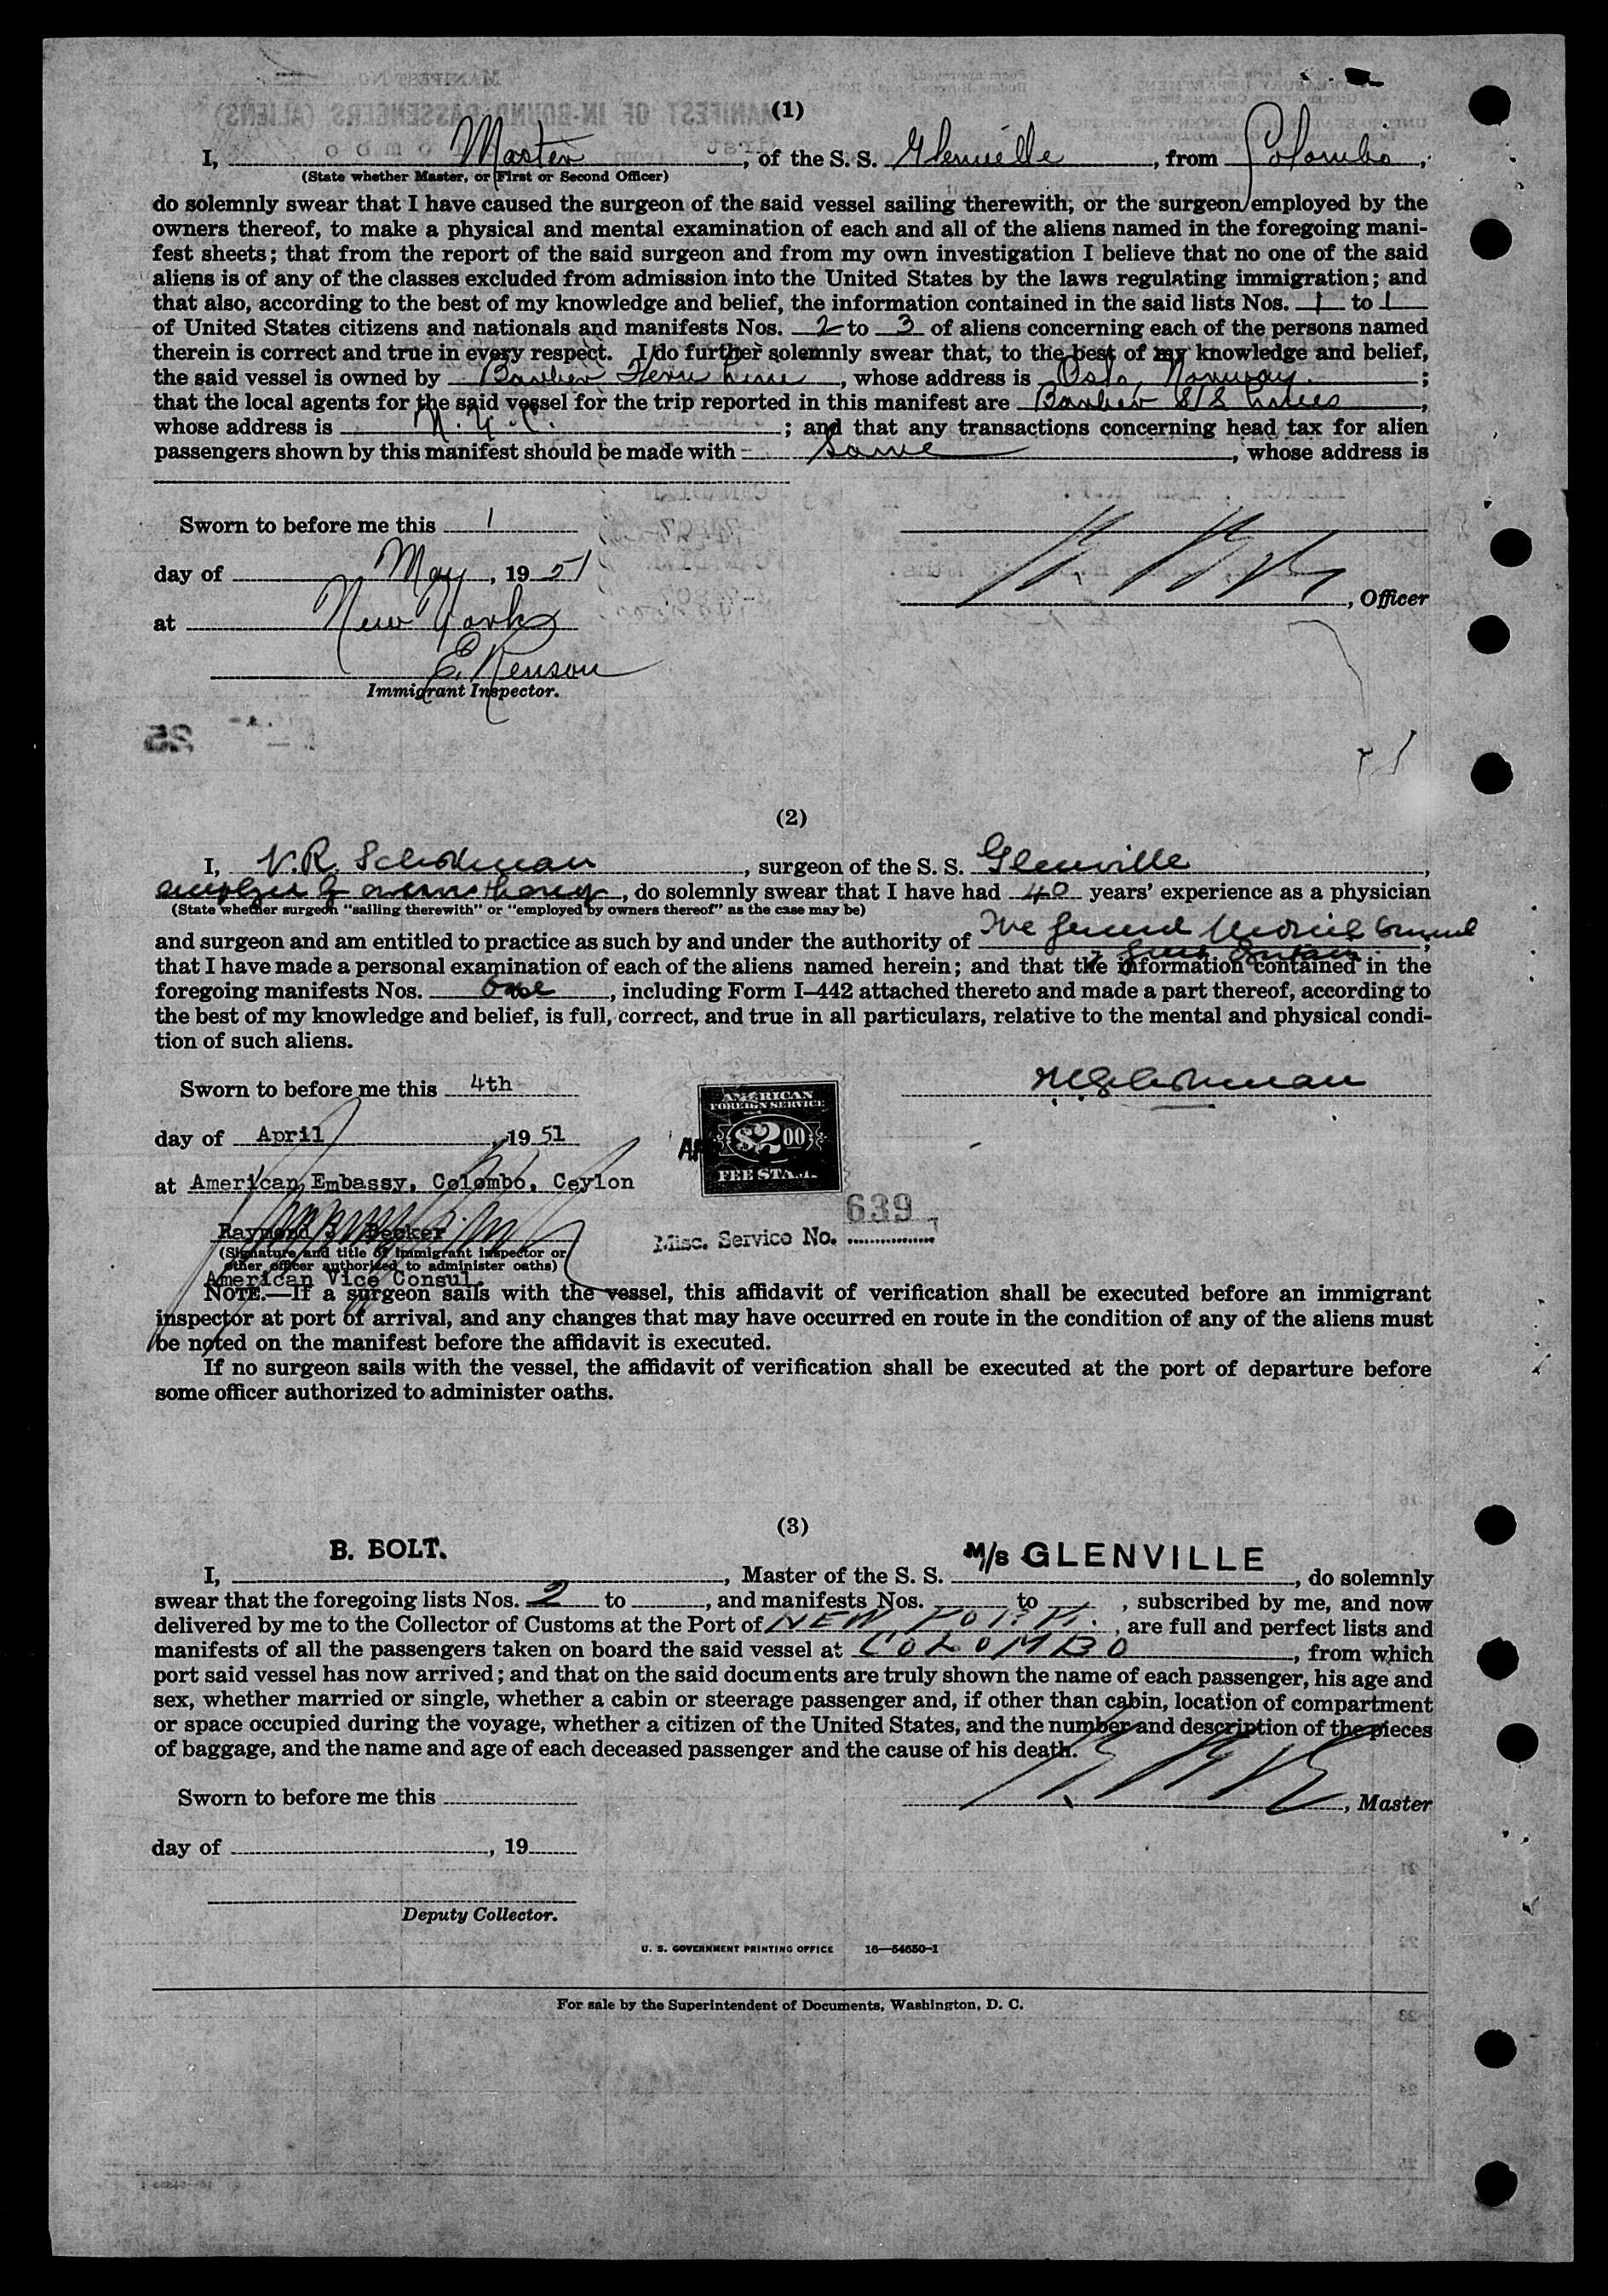 (1)
I, Master, of the S. S. Glenville, from Colombo,
(State whether Master, or First or Second Officer)
do solemnly swear that I have caused the surgeon of the said vessel sailing therewith, or the surgeon employed by the
owners thereof, to make a physical and mental examination of each and all of the aliens named in the foregoing mani-
fest sheets; that from the report of the said surgeon and from my own investigation I believe that no one of the said
aliens is of any of the classes excluded from admission into the United States by the laws regulating immigration; and
that also, according to the best of my knowledge and belief, the information contained in the said lists Nos. 1 to 1
of United States citizens and nationals and manifests Nos. 2 to 3 of aliens concerning each of the persons named
therein is correct and true in every respect. I do further solemnly swear that, to the best of my knowledge and belief,
the said vessel is owned by Barber Fern Line, whose address is Oslo, Norway.;
that the local agents for the said vessel for the trip reported in this manifest are Barber S/S Lines,
whose address is N. Y. C.; and that any transactions concerning head tax for alien
passengers shown by this manifest should be made with Same, whose address is
Sworn to before me this 1
day of May, 1951
, Officer
at New York
E. Renson
Immigrant Inspector.
25
(2)
I, V.R. Schokman, surgeon of the S. S. Glenville,
employee of owners thereof, do solemnly swear that I have had 40 years' experience as a physician
(State whether surgeon "sailing therewith" or "employed by owners thereof" as the case may be)
and surgeon and am entitled to practice as such by and under the authority of The General Medical Council
of Great Britain,
that I have made a personal examination of each of the aliens named herein; and that the information contained in the
foregoing manifests Nos. One, including Form I-442 attached thereto and made a part thereof, according to
the best of my knowledge and belief, is full, correct, and true in all particulars, relative to the mental and physical condi-
tion of such aliens.
Sworn to before me this 4th
VRSchokman
day of April, 1951
AMERICAN
FOREIGN SERVICE
$2.00
FEE STAMP
at American Embassy, Colombo, Ceylon
639
Misc. Service No.
Raymond J. Becker
(Signature and title of immigrant inspector or
other officer authorized to administer oaths)
American Vice Consul.
NOTE.—If a surgeon sails with the vessel, this affidavit of verification shall be executed before an immigrant
inspector at port of arrival, and any changes that may have occurred en route in the condition of any of the aliens must
be noted on the manifest before the affidavit is executed.
If no surgeon sails with the vessel, the affidavit of verification shall be executed at the port of departure before
some officer authorized to administer oaths.
(3)
I, B. BOLT., Master of the S. S. M/S GLENVILLE, do solemnly
swear that the foregoing lists Nos. 2 to , and manifests Nos. to , subscribed by me, and now
delivered by me to the Collector of Customs at the Port of NEW YORK., are full and perfect lists and
manifests of all the passengers taken on board the said vessel at COLOMBO, from which
port said vessel has now arrived; and that on the said documents are truly shown the name of each passenger, his age and
sex, whether married or single, whether a cabin or steerage passenger and, if other than cabin, location of compartment
or space occupied during the voyage, whether a citizen of the United States, and the number and description of the pieces
of baggage, and the name and age of each deceased passenger and the cause of his death.
Sworn to before me this
, Master
day of , 19
Deputy Collector.
U. S. GOVERNMENT PRINTING OFFICE 16—54650-1
For sale by the Superintendent of Documents, Washington, D. C.